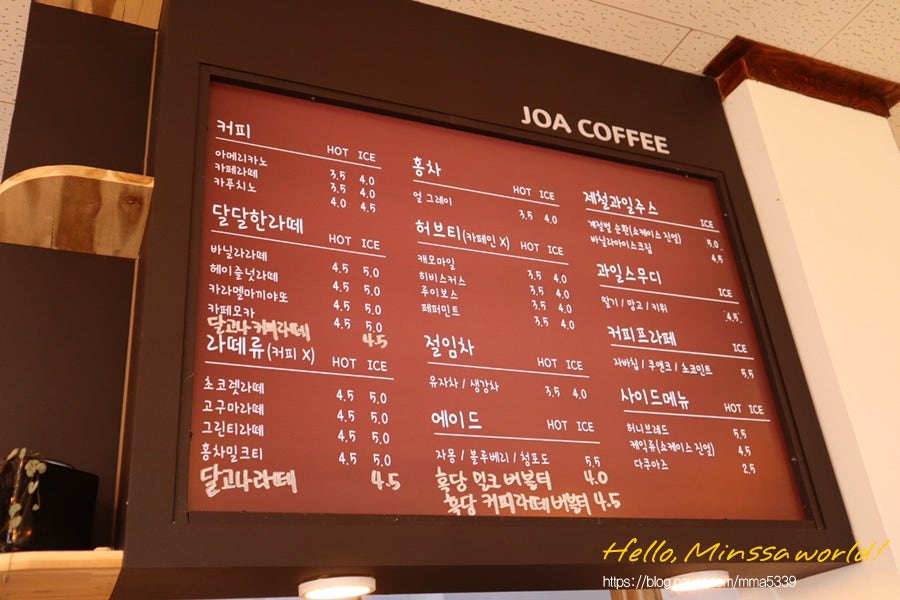 JOA COFFEE
커피
HOT ICE
아메리카노 3.5 4.0
카페라떼 3.5 4.0
카푸치노 4.0 4.5
달달한라떼
HOT ICE
바닐라라떼 4.5 5.0
헤이즐넛라떼 4.5 5.0
카라멜마끼야또 4.5 5.0
카페모카 4.5 5.0
달고나 커피라떼 4.5
라떼류(커피 X)
HOT ICE
초코렛라떼 4.5 5.0
고구마라떼 4.5 5.0
그린티라떼 4.5 5.0
홍차밀크티 4.5 5.0
달고나라떼 4.5
홍차
HOT ICE
얼 그레이 3.5 4.0
허브티(카페인 X)
HOT ICE
캐모마일 3.5 4.0
히비스커스 3.5 4.0
루이보스 3.5 4.0
페퍼민트 3.5 4.0
절임차
HOT ICE
유자차 / 생강차 3.5 4.0
에이드
HOT ICE
자몽 / 블루베리 / 청포도 5.5
흑당 밀크 버블티 4.0
흑당 커피라떼 버블티 4.5
제철과일주스
ICE
계절별 순환(쇼케이스 진열) 5.0
바닐라아이스크림 4.5
과일스무디
ICE
딸기 / 망고 / 키위 4.5
커피프라페
ICE
자바칩 / 쿠앤크 / 쵸코민트 5.5
사이드메뉴
HOT ICE
허니브레드 5.5
케익류(쇼케이스 진열) 4.5
다쿠아즈 2.5
Hello, Minssaworld!
https://blog.naver.com/mma5339